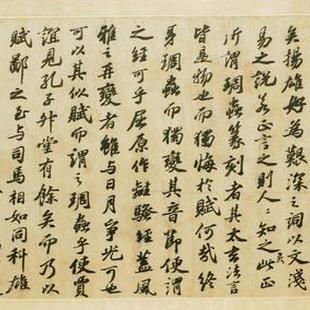 矣揚雄好為艱深之詞以文淺
易之說若正言之則人〻知之矣此正
所謂琱蟲篆刻者其太玄法言
皆是物也而獨悔於賦何哉終
身琱蟲而獨變其音節便謂
之經可乎屈原作離騷經蓋風
雅之再變者雖与日月爭光可也
可以其似賦而謂之琱蟲乎使賈
誼見孔子升堂有餘矣而乃以
賦鄙之至与司馬相如同科雄